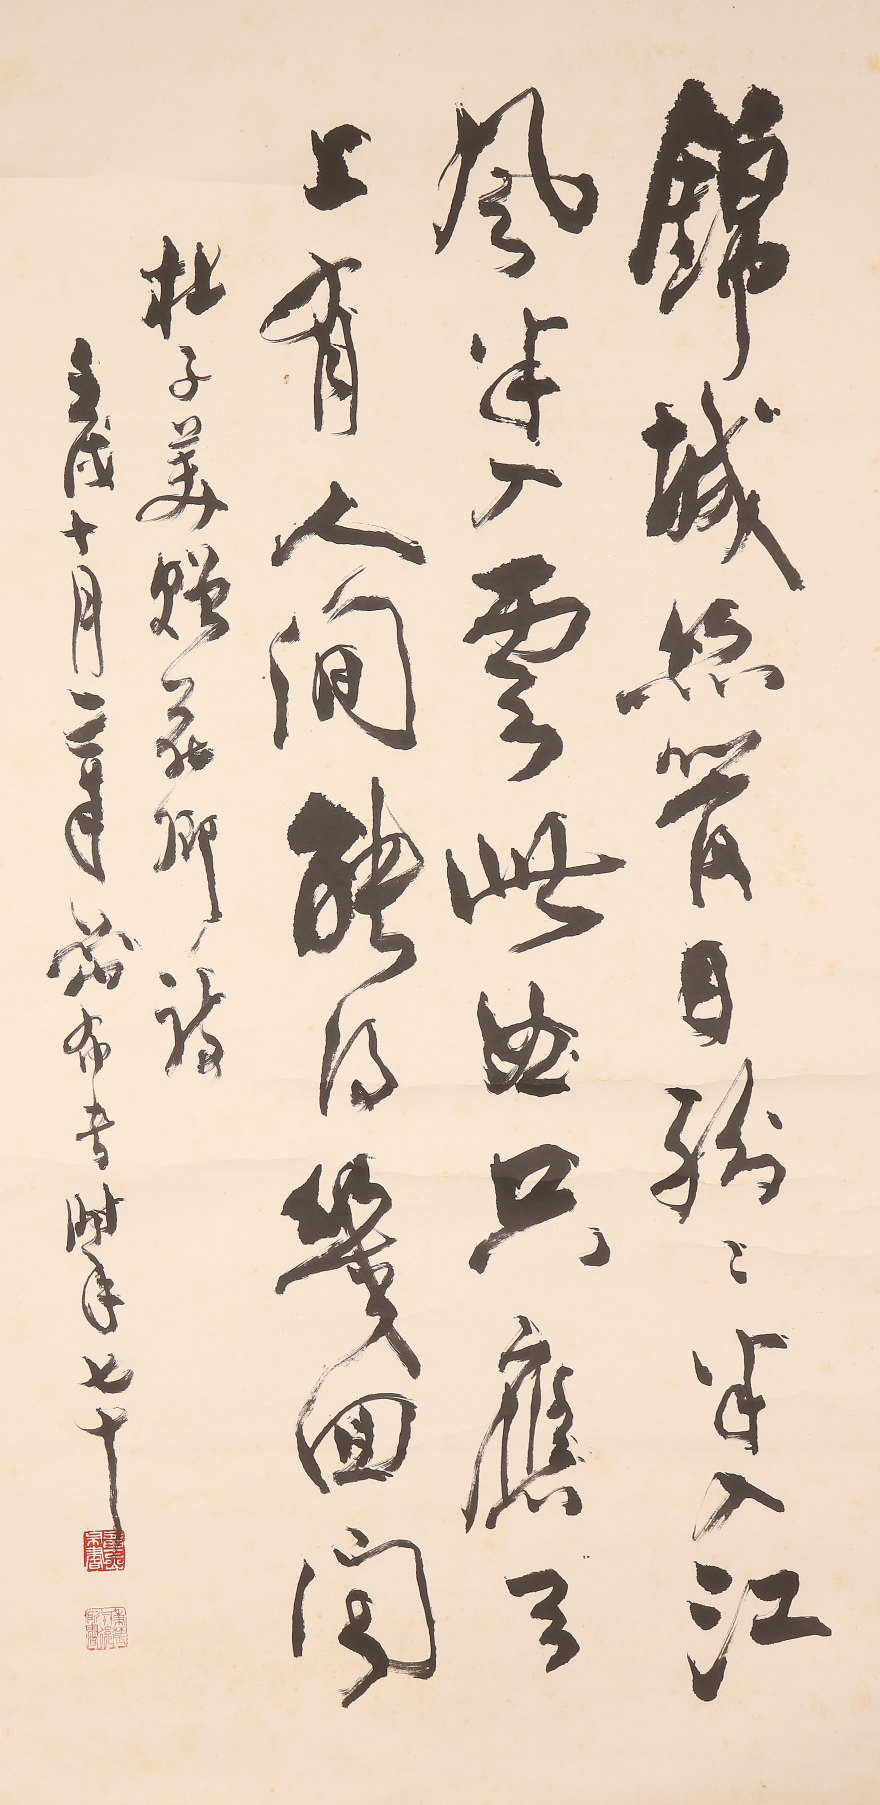 錦城絲管日紛〻半入江
風半入雲此曲只應天
上有人間能得幾回聞
杜子美贈花卿詩
壬戌十月二章
希古時年七十